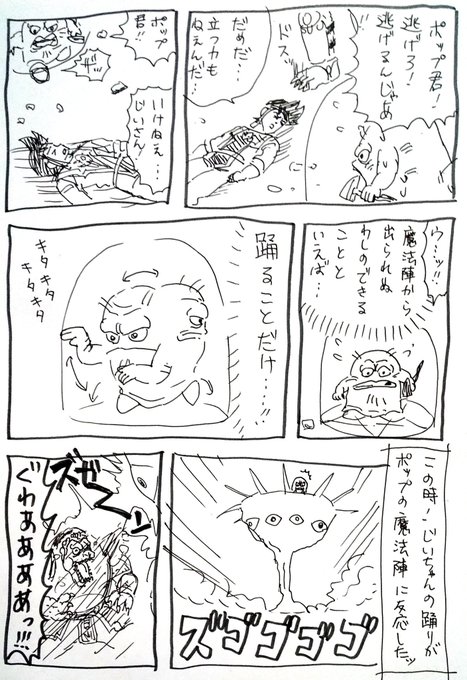 ポップ君!
逃げろ!
逃げるんじゃあ
ドスッ
だめだ…
立つ力も
ねぇんだ…
ポップ
君!!
いけねぇ…
じいさん
ウーッ!!
魔法陣から
出られぬ
わしのできる
ことと
いえば…
踊ることだけ……
キタキタ
キタキタ
キタキタ
この時!じいちゃんの踊りが
ポップの魔法陣に反応したッ
ズゴゴゴゴ
ズガーン
ぐわああああっ!!!